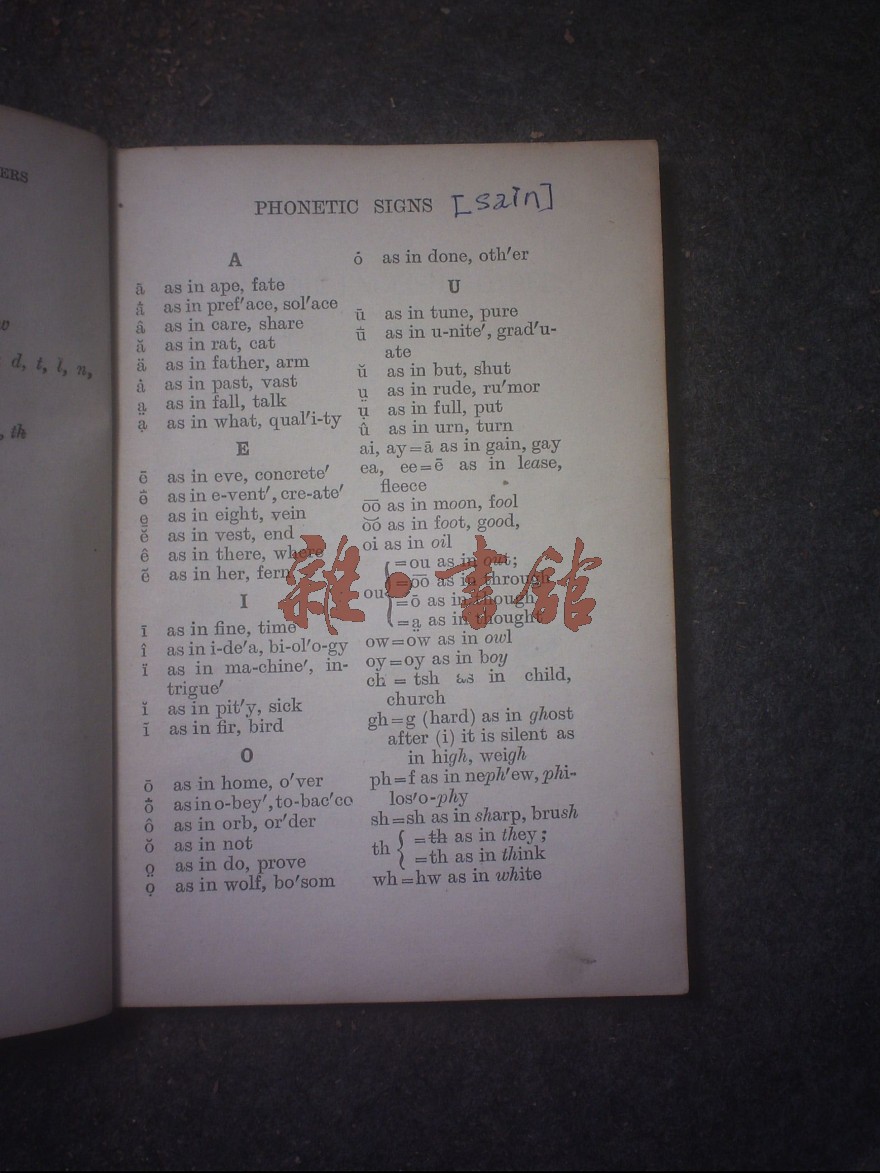 ERS
d, t, l, n,
th
PHONETIC SIGNS [sain]
A
ā as in ape, fate
ǡ as in pref′ace, sol′ace
â as in care, share
ă as in rat, cat
ä as in father, arm
ȧ as in past, vast
a̤ as in fall, talk
ạ as in what, qual′i-ty
E
ē as in eve, concrete′
ė̄ as in e-vent′, cre-ate′
e̱ as in eight, vein
ĕ as in vest, end
ê as in there, where
ẽ as in her, fern
I
ī as in fine, time
î as in i-de′a, bi-ol′o-gy
ï as in ma-chine′, in-
trigue′
ĭ as in pit′y, sick
ĩ as in fir, bird
O
ō as in home, o′ver
ȱ as in o-bey′, to-bac′co
ô as in orb, or′der
ŏ as in not
o̤ as in do, prove
ọ as in wolf, bo′som
ȯ as in done, oth′er
U
ū as in tune, pure
u̇̄ as in u-nite′, grad′u-
ate
ŭ as in but, shut
ṳ as in rude, ru′mor
ụ as in full, put
û as in urn, turn
ai, ay=ā as in gain, gay
ea, ee=ē as in lease,
fleece
o͞o as in moon, fool
o͝o as in foot, good,
oi as in oil
ou { =ou as in out;
=o͞o as in through
=ō as in though,
=a̤ as in thought
ow=ow as in owl
oy=oy as in boy
ch = tsh as in child,
church
gh=g (hard) as in ghost
after (i) it is silent as
in high, weigh
ph=f as in neph′ew, phi-
los′o-phy
sh=sh as in sharp, brush
th { =t̶h̶ as in they;
=th as in think
wh=hw as in white
雜·書館